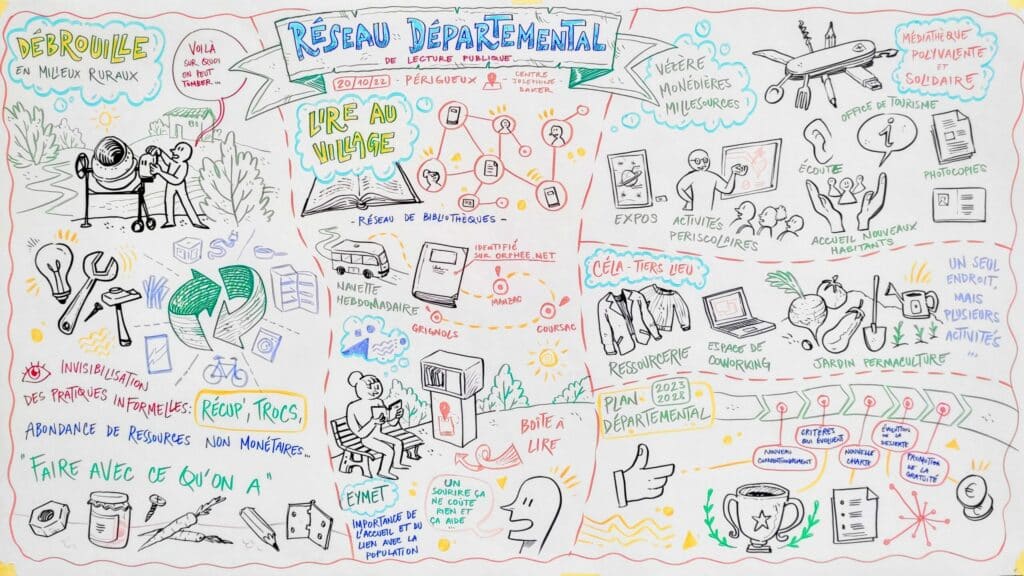 RÉSEAU DÉPARTEMENTAL
DE LECTURE PUBLIQUE
20/10/22 - PÉRIGUEUX
CENTRE
JOSÉPHINE
BAKER
DÉBROUILLE
EN MILIEUX RURAUX
VOILÀ
SUR QUOI
ON PEUT
TOMBER...
INVISIBILISATION
DES PRATIQUES INFORMELLES:
RÉCUP', TROCS,
ABONDANCE DE RESSOURCES NON MONÉTAIRES...
"FAIRE AVEC CE QU'ON A"
LIRE AU
VILLAGE
- RÉSEAU DE BIBLIOTHÈQUES -
NAVETTE
HEBDOMADAIRE
IDENTIFIÉ
SUR ORPHEE.NET
MARZAC
GRIGNOLS
COURSAC
BOÎTE À
LIRE
EYMET
IMPORTANCE DE
L'ACCUEIL ET DU
LIEN AVEC LA
POPULATION
UN
SOURIRE ÇA
NE COÛTE
RIEN ET
ÇA AIDE...
VÉZÈRE
MONÉDIÈRES
MILLESOURCES
MÉDIATHÈQUE
POLYVALENTE
ET
SOLIDAIRE
OFFICE DE TOURISME
i
ÉCOUTE
PHOTOCOPIES
EXPOS
ACTIVITÉS
PERISCOLAIRES
ACCUEIL NOUVEAUX
HABITANTS
CÉLA - TIERS LIEU
RESSOURCERIE
ESPACE DE
COWORKING
JARDIN PERMACULTURE
UN SEUL
ENDROIT,
MAIS
PLUSIEURS
ACTIVITÉS
...
PLAN
DÉPARTEMENTAL
2023
2028
NOUVEAU
CONVENTIONNEMENT
CRITÈRES
QUI ÉVOLUENT
NOUVELLE
CHARTE
ÉVOLUTION
DE LA
DESSERTE
PROMOTION
DE LA
GRATUITÉ
€